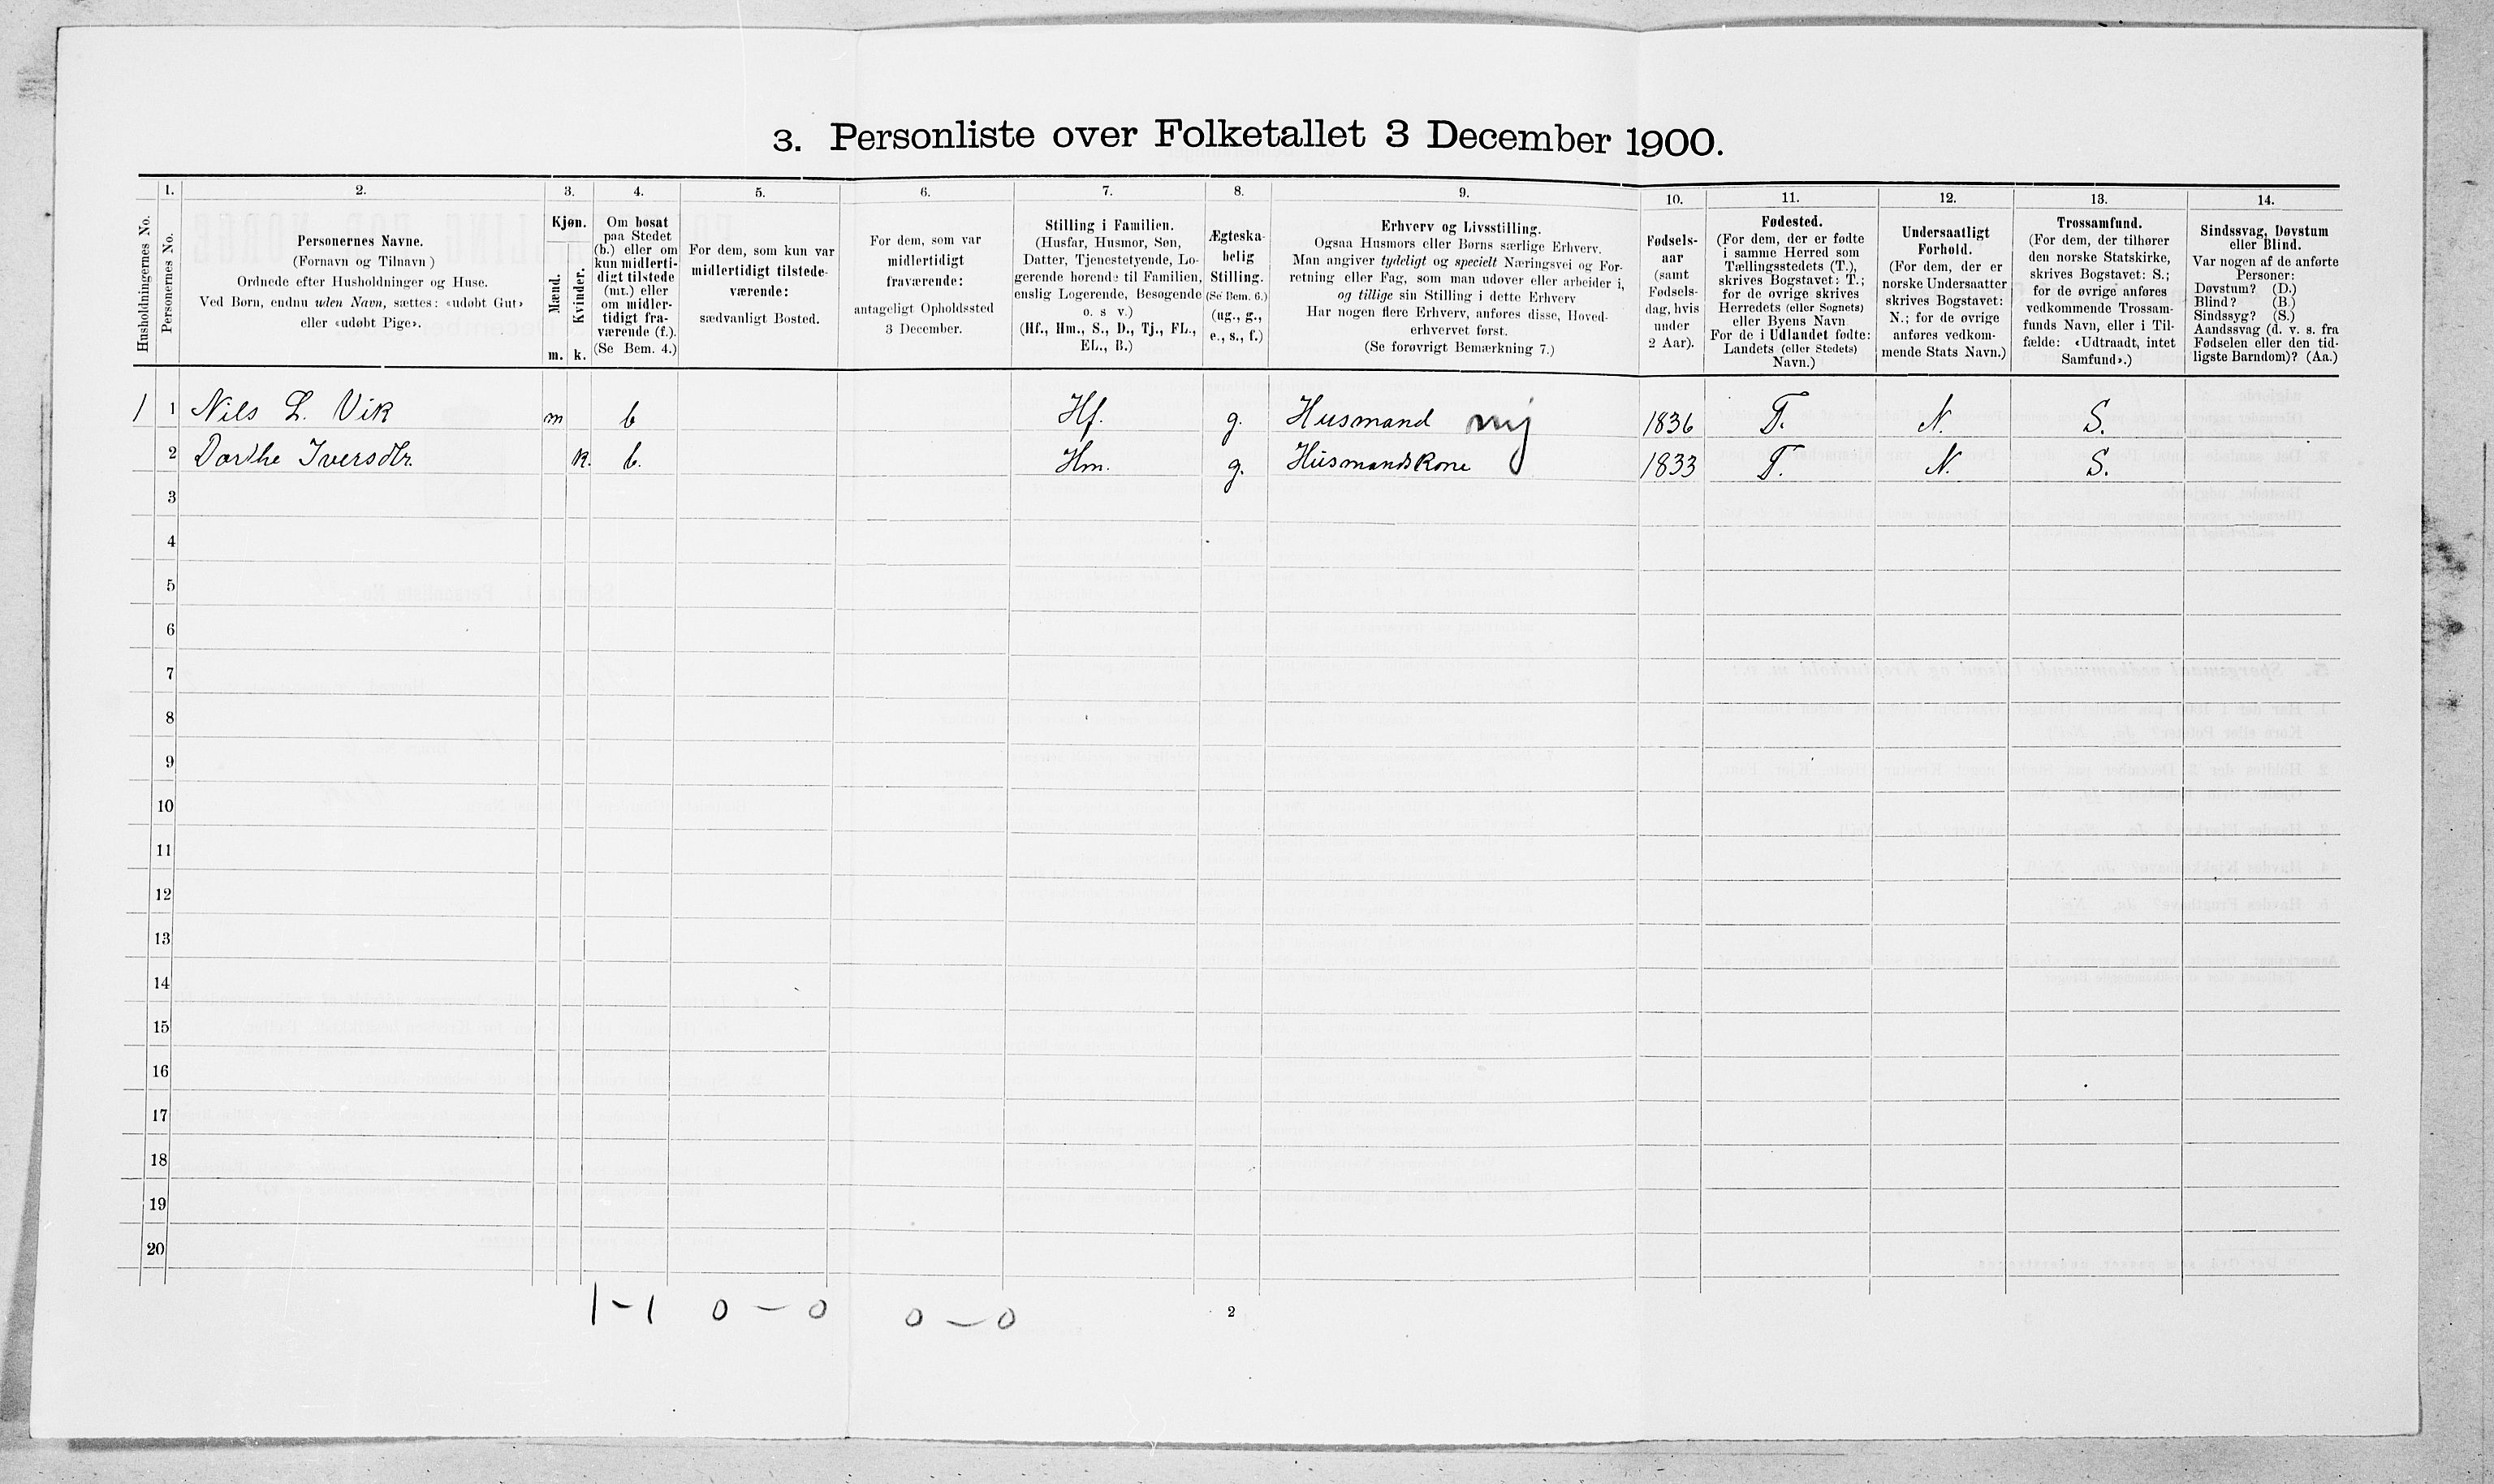 3. Personliste over Folketallet 3 December 1900.
Husholdningernes No.
1.
Personernes No.
2.
Personernes Navne.
(Fornavn og Tilnavn)
Ordnede efter Husholdninger og Huse.
Ved Børn, endnu uden Navn, sættes: «udøbt Gut»
eller «udøbt Pige».
3.
Kjøn.
Mænd.
Kvinder.
m. k.
4.
Om bosat
paa Stedet
(b.) eller om
kun midlerti-
digt tilstede
(mt.) eller
om midler-
tidigt fra-
værende (f.).
(Se Bem. 4.)
5.
For dem, som kun var
midlertidigt tilstede-
værende:
sædvanligt Bosted.
6.
For dem, som var
midlertidigt
fraværende:
antageligt Opholdssted
3 December.
7.
Stilling i Familien.
(Husfar, Husmor, Søn,
Datter, Tjenestetyende, Lo-
gerende hørende til Familien,
enslig Logerende, Besøgende
o. s v.)
(Hf., Hm., S., D., Tj., FL.,
EL., B.)
8.
Ægteska-
belig
Stilling.
(Se Bem. 6.)
(ug., g.,
e., s., f.)
9.
Erhverv og Livsstilling.
Ogsaa Husmors eller Børns særlige Erhverv.
Man angiver tydeligt og specielt Næringsvei og For-
retning eller Fag, som man udøver eller arbeider i,
og tillige sin Stilling i dette Erhverv
Har nogen flere Erhverv, anføres disse, Hoved-
erhvervet først.
(Se forøvrigt Bemærkning 7.)
10.
Fødsels-
aar
(samt
Fødsels-
dag, hvis
under
2 Aar).
11.
Fødested.
(For dem, der er fødte
i samme Herred som
Tællingsstedets (T.),
skrives Bogstavet: T.;
for de øvrige skrives
Herredets (eller Sognets)
eller Byens Navn
For de i Udlandet fødte:
Landets (eller Stedets)
Navn.)
12.
Undersaatligt
Forhold.
(For dem, der er
norske Undersaatter
skrives Bogstavet:
N.; for de øvrige
anføres vedkom-
mende Stats Navn.)
13.
Trossamfund.
(For dem, der tilhører
den norske Statskirke,
skrives Bogstavet: S.;
for de øvrige anføres
vedkommende Trossam-
funds Navn, eller i Til-
fælde: «Udtraadt, intet
Samfund».)
14.
Sindssvag, Døvstum
eller Blind.
Var nogen af de anførte
Personer:
Døvstum? (D.)
Blind? (B.)
Sindssyg? (S.)
Aandssvag (d. v. s. fra
Fødselen eller den tid-
ligste Barndom)? (Aa.)
1 1 Nils L. Vik m b Hf. g. Husmand mj 1836 T. N. S.
2 Dorthe Iversdtr. k. b. Hm. g. Husmandskone 1833 T. N. S.
3
4
5
6
7
8
9
10
11
12
13
14
15
16
17
18
19
20
1 - 1 0 - 0 0 - 0
2